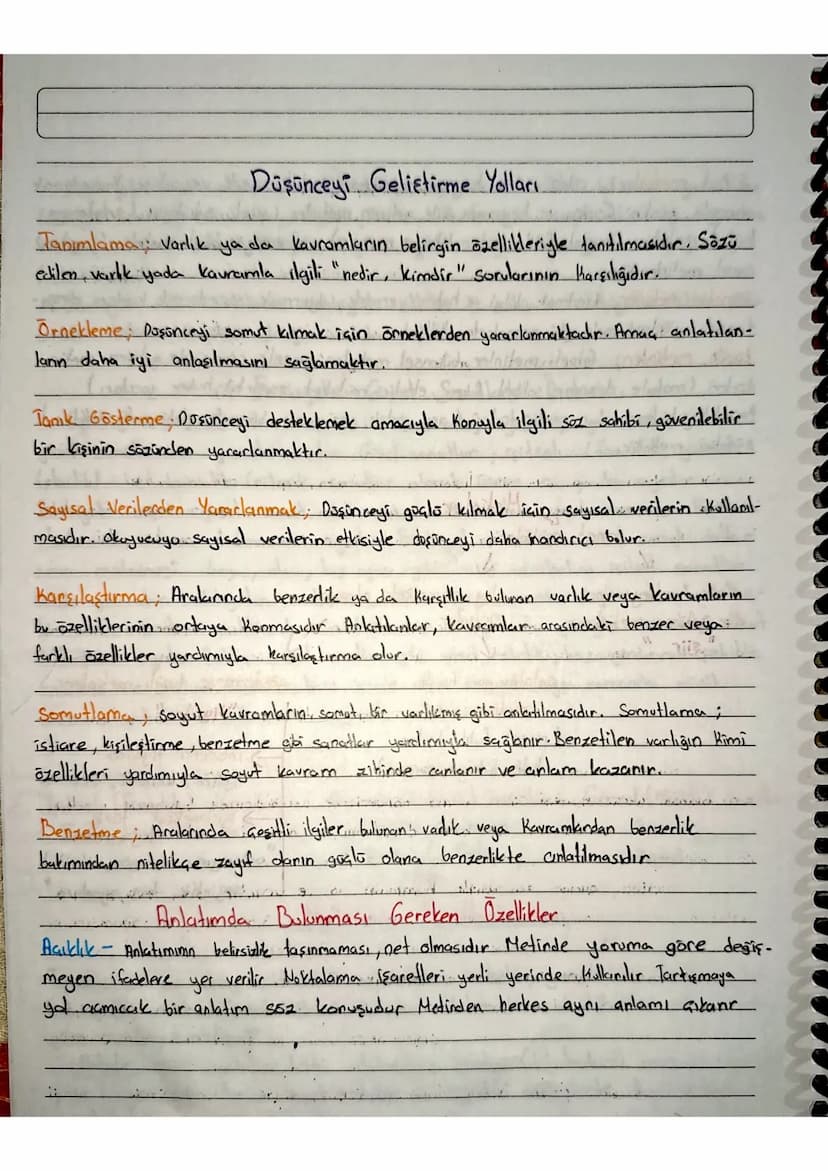 Düşünceyi Geliştirme Yolları
Tanımlama; Varlık ya da kavramların belirgin özellikleriyle tanıtılmasıdır. Sözü
edilen varlık yada kavramla ilgili "nedir, kimdir" sorularının karşılığıdır.
Örnekleme; Düşünceyi somut kılmak için örneklerden yararlanmaktadır. Amaç anlatılan-
ların daha iyi anlaşılmasını sağlamaktır.
Tanık Gösterme; Düşünceyi desteklemek amacıyla konuyla ilgili söz sahibi, güvenilebilir
bir kişinin sözünden yararlanmaktır.
Sayısal Verilerden Yararlanmak; Düşünceyi güçlü kılmak için sayısal verilerin kullanıl-
masıdır. Okuyucuyo sayısal verilerin etkisiyle düşünceyi daha inandırıcı bulur.
Karşılaştırma; Aralarında benzerlik ya da karşıtlık bulunan varlık veya kavramların
bu özelliklerinin ortaya konmasıdır Anlatılanlar, kavramlar arasındaki benzer veya
farklı özellikler yardımıyla karşılaştırma olur.
Somutlama; soyut kavramların somut bir varlıkmış gibi anlatılmasıdır. Somutlama;
istiare, kişileştirme, benzetme gibi sanatlar yardımıyla sağlanır. Benzetilen varlığın kimi
özellikleri yardımıyla soyut kavram zihinde canlanır ve anlam kazanır.
Benzetme; Aralarında çeşitli ilgiler bulunan varlık veya kavramlardan benzerlik
bakımından nitelikçe zayıf olanın güçlü olana benzerlikte anlatılmasıdır
Anlatımda Bulunması Gereken Özellikler
Açıklık - Anlatımının belirsizlik taşınmaması, net olmasıdır Metinde yoruma göre değiş-
meyen ifadelere yer verilir Noktalama işaretleri yerli yerinde kullanılır Tartışmaya
yol açmıcak bir anlatım söz konusudur Metinden herkes aynı anlamı çıkarır